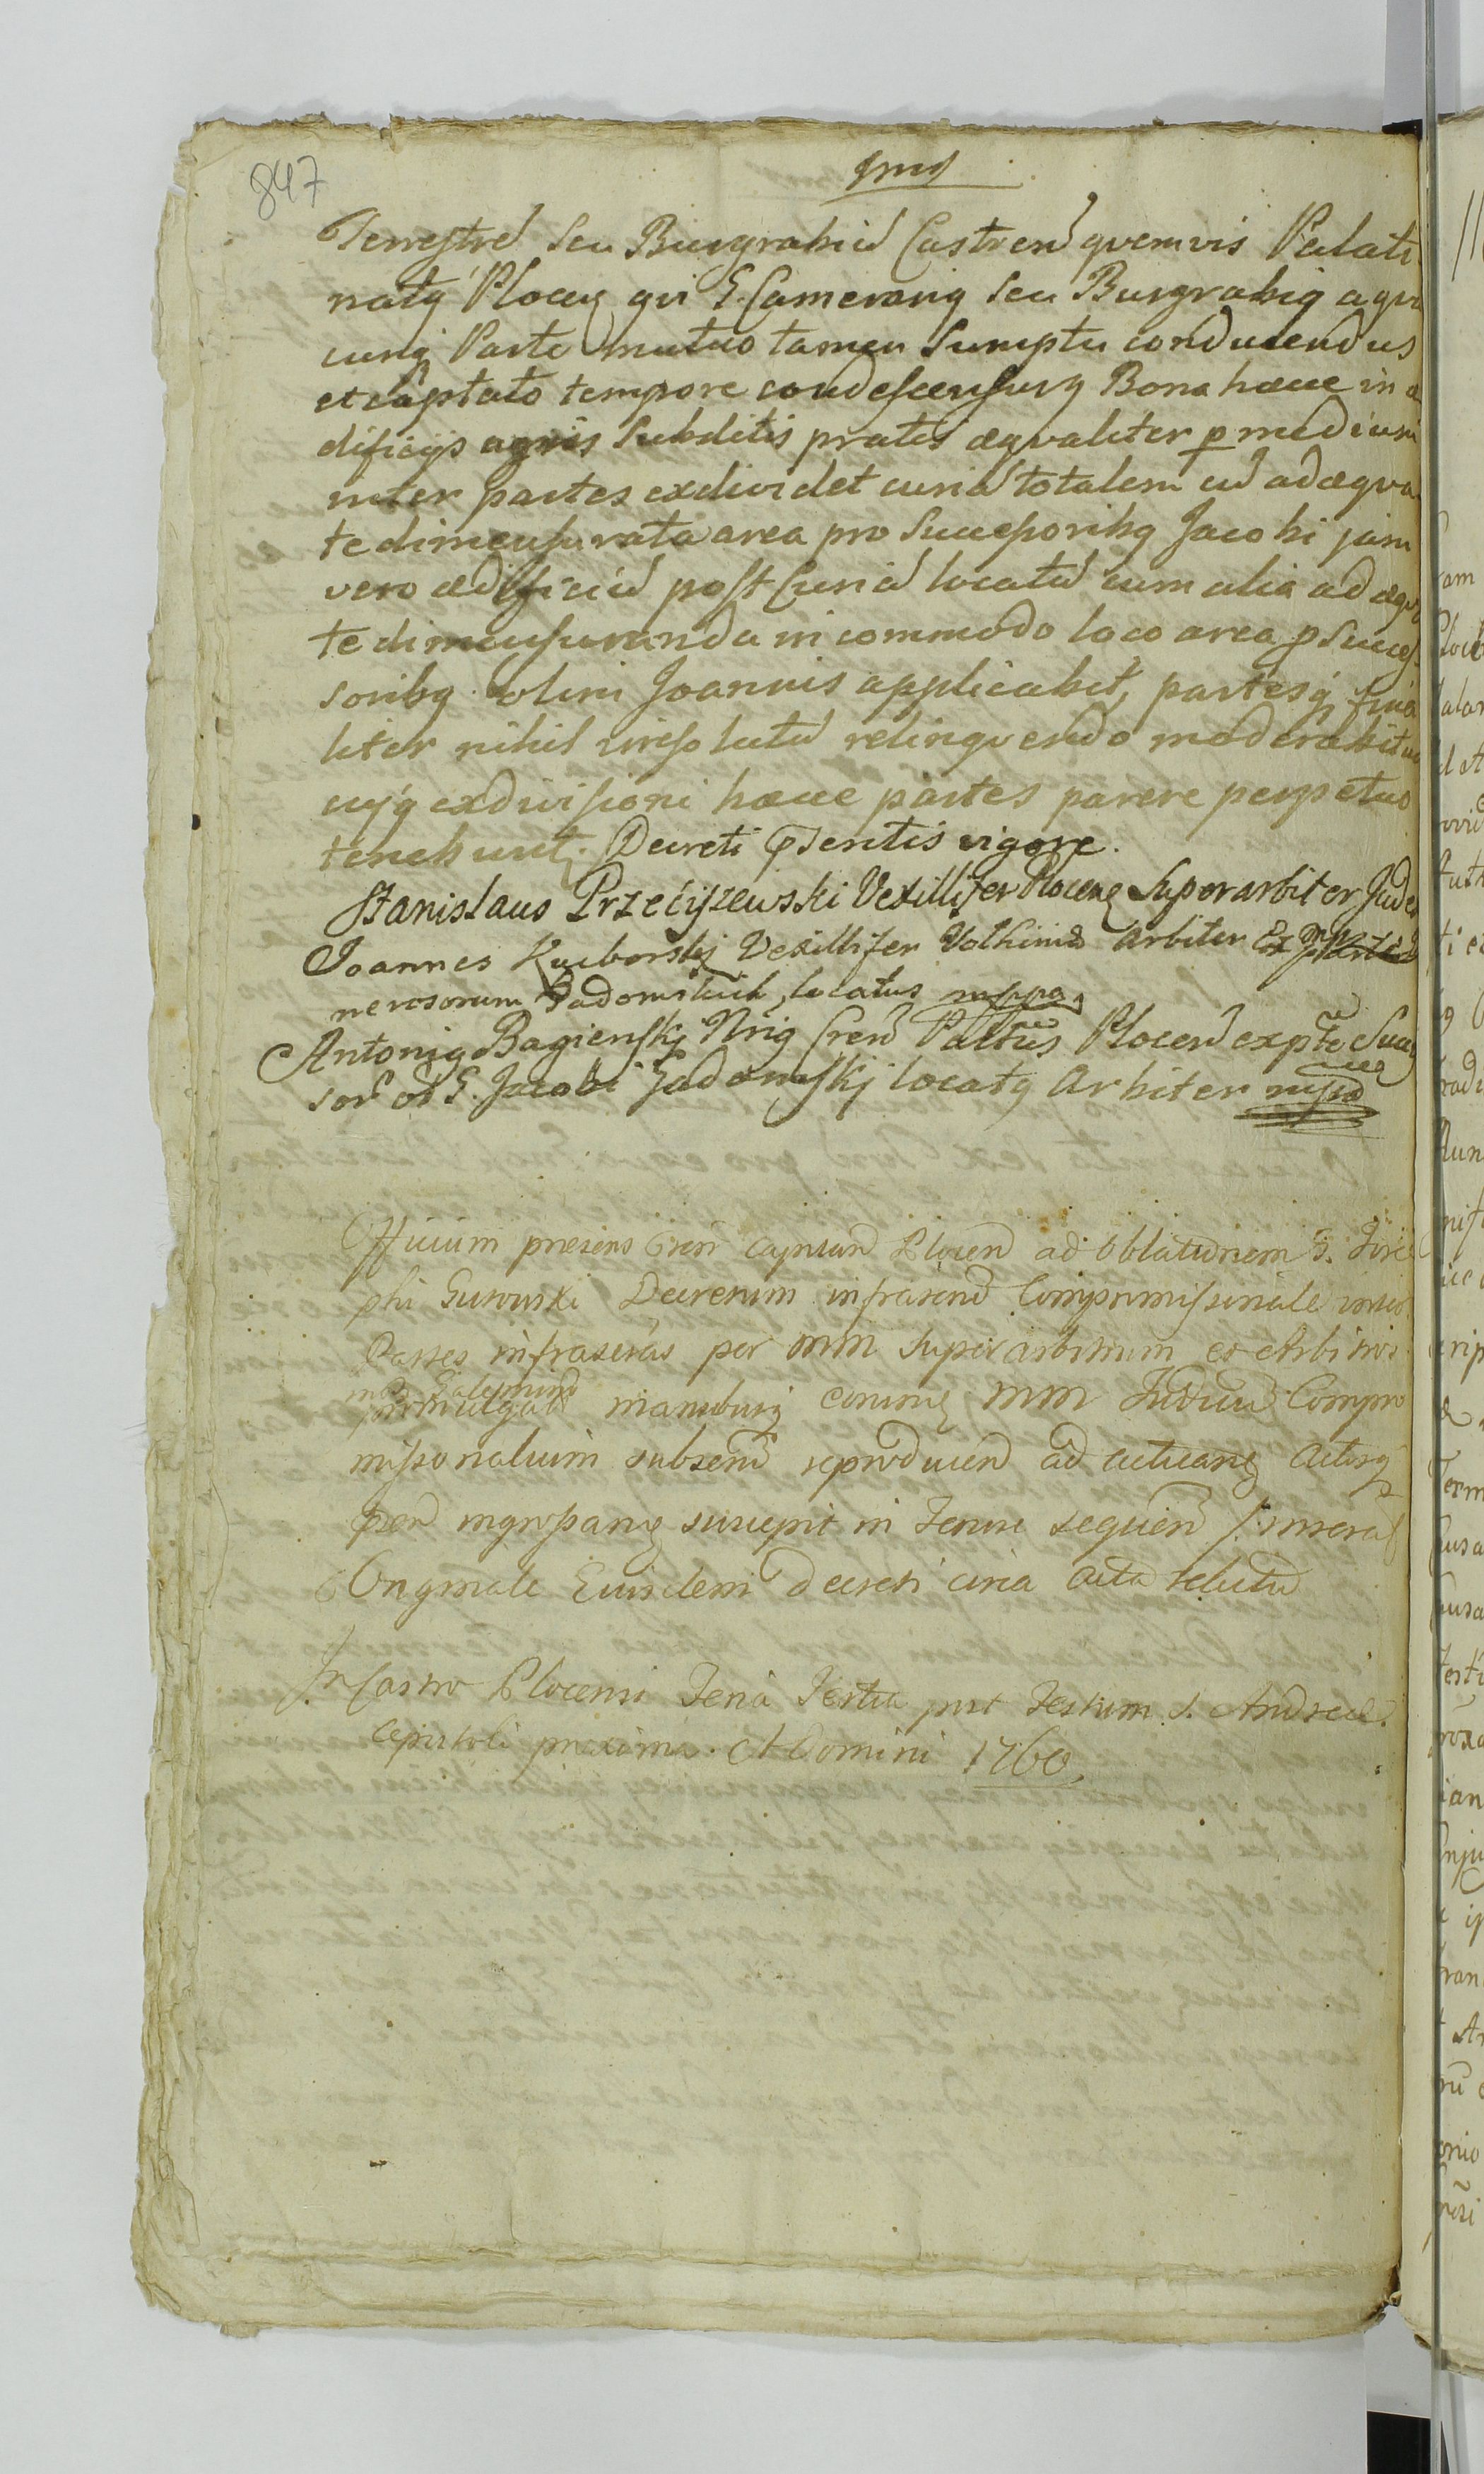 847
Terrestre seu Burgrabiū Castren quemvis Palati
natq Plocen qui G. Camerariq seu Burgrabiq a qua
cunq Parte mutuo tamen Sumptu conducendus
et captato tempore condescensurq Bona haece in æ
dificijs agris Subditis pratis æqvaliter p medium
inter partes exdividet curiā totalem cū adæqva
te dimensurata area pro Successoribq Jacobi jam
vero ædificiū post Curiā locatū cum alia adæqva
te dimensuranda in commodo loco area p Succes
soribq olim Joannis applicabit, partesq fina
liter nihil irresolutū relinqvendo moderabitur
cujq exdivisioni haece partes parere perpetuo
tenebunt. Decreti Psentis vigore.
Stanislaus Przeciszewski Vexillifer Plocens Superarbiter Judex
Joannes Kuiborskj Vexillifer Volhiniæ Arbiter Ex parte
nerosorum Zadomskich locatus mppa
Antoniq Bagienskj Nriq Cren Palttus Plocen ex pte Succes
sor ol G. Jacobi Zadomskj locatq Arbiter mpp
Officium præsens Cren Capitan Plocen ad Oblationem G. Jose
phi Gurowski Decretum infrascrip Compromissionale inter
Partes infrascriptas per MM Superarbitrum et Arbitros
promulgat manibusq eorumq MM Judicū Compro
missionalium subscrip reproducen ad acticanq Actisq
psen ingrossanq suscepit in Tenore sequen / Inserat
Originale Eiusdem decreti circa acta relictū
In Castro Plocensi Feria Tertia post Festum S. Andreæ
Apostoli proxima A Domini 1760